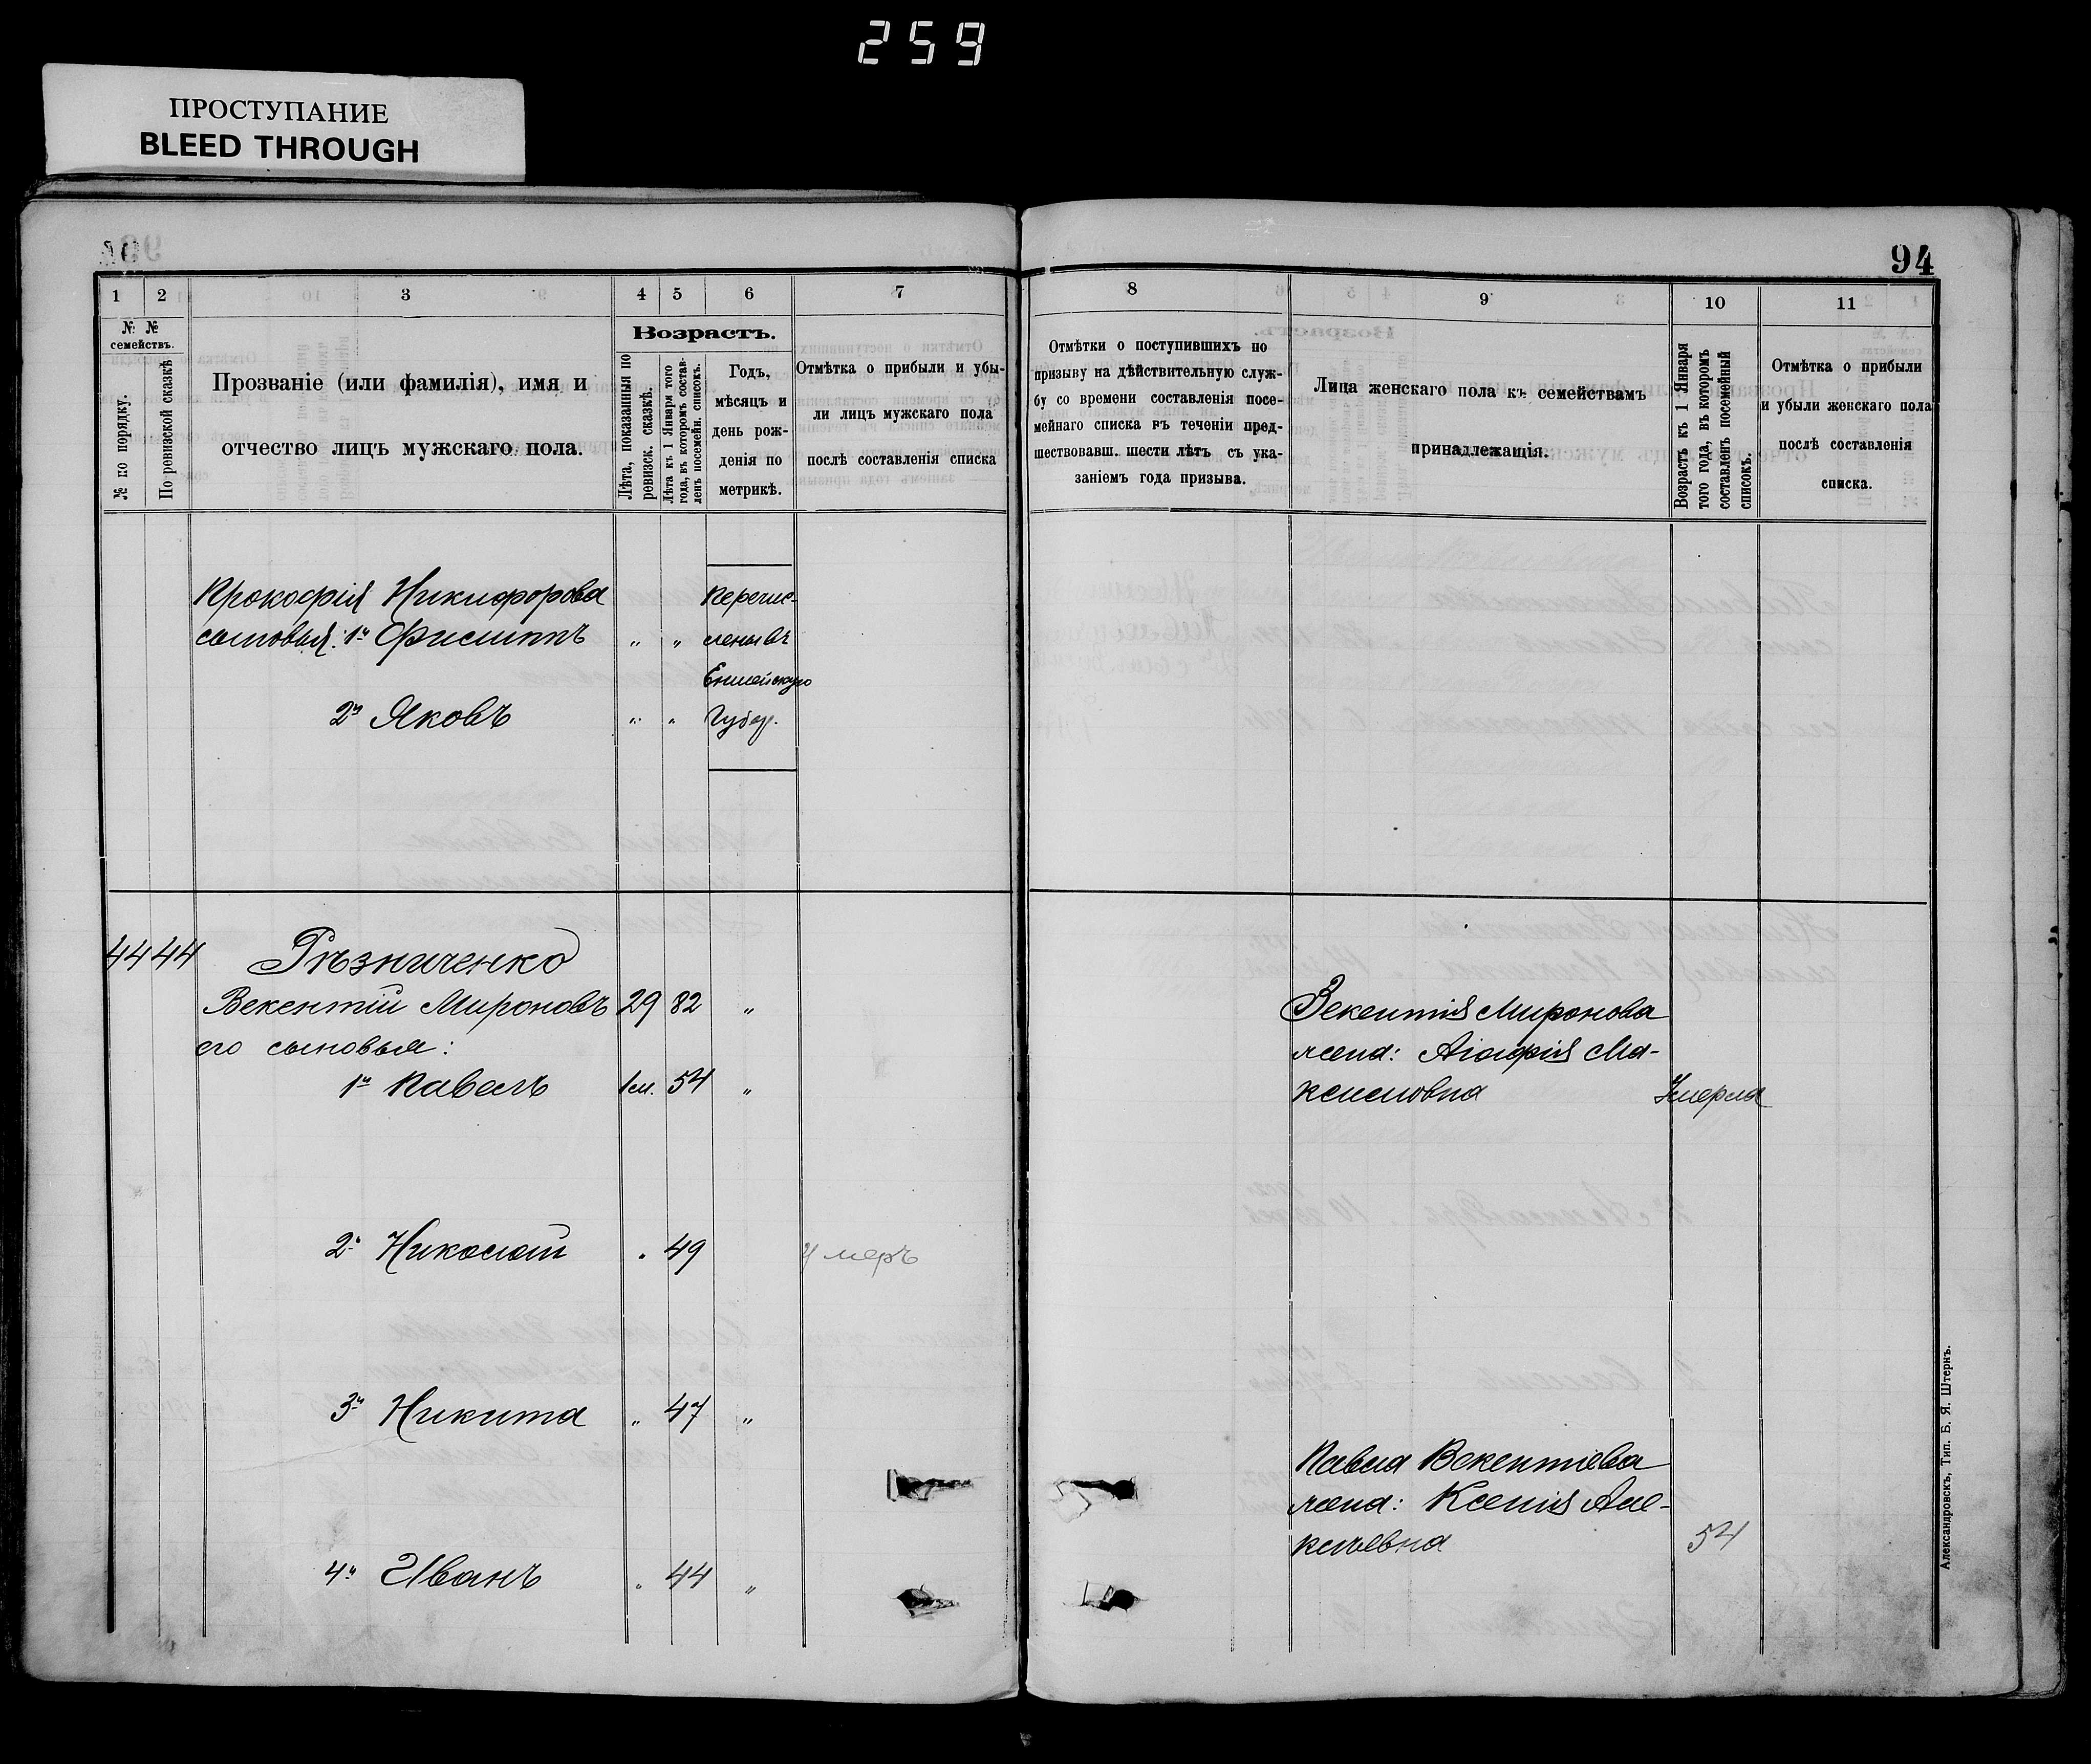 259
ПРОСТУПАНИЕ
BLEED THROUGH
94
1 2 3 4 5 6 7 8 9 10 11
№ № семействъ.
№ по порядку.
По ревизской сказкѣ
Прозваніе (или фамилія), имя и
отчество лицъ мужскаго пола.
Возрастъ.
Лѣта, показанныя по
ревизск. сказкѣ.
Лѣта къ 1 Января того
года, въ которомъ состав-
ленъ посемейн. списокъ.
Годъ,
мѣсяцъ и
день рож-
денія по
метрикѣ.
Отмѣтка о прибыли и убы-
ли лицъ мужскаго пола
послѣ составленія списка
Отмѣтки о поступившихъ по
призыву на дѣйствительную служ-
бу со времени составленія посе-
мейнаго списка въ теченіи пред-
шествовавш. шести лѣтъ съ ука-
заніемъ года призыва.
Лица женскаго пола къ семействамъ
принадлежащія.
Возрастъ къ 1 Января
того года, въ которомъ
составленъ посемейный
списокъ.
Отмѣтка о прибыли
и убыли женскаго пола
послѣ составленія
списка.
Прокофія Никифорова
сыновья: 1й Филиппъ " "
2й Яковъ " "
Перечис-
лены въ
Енисейскую
Губер.
44 44 Рѣзниченко
Векентій Мироновъ 29 82 "
его сыновья:
1й Павелъ 1м. 54 "
2й Николай " 49 Умеръ
3й Никита " 47 "
4й Иванъ " 44 "
Векентія Миронова
жена: Агафія Ма-
ксимовна Умерла
Павла Векентіева
жена: Ксенія Але-
ксѣевна 54
Александровскъ, Тип. Б. Я. Штернъ.